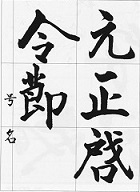 元正啓
令節
号名